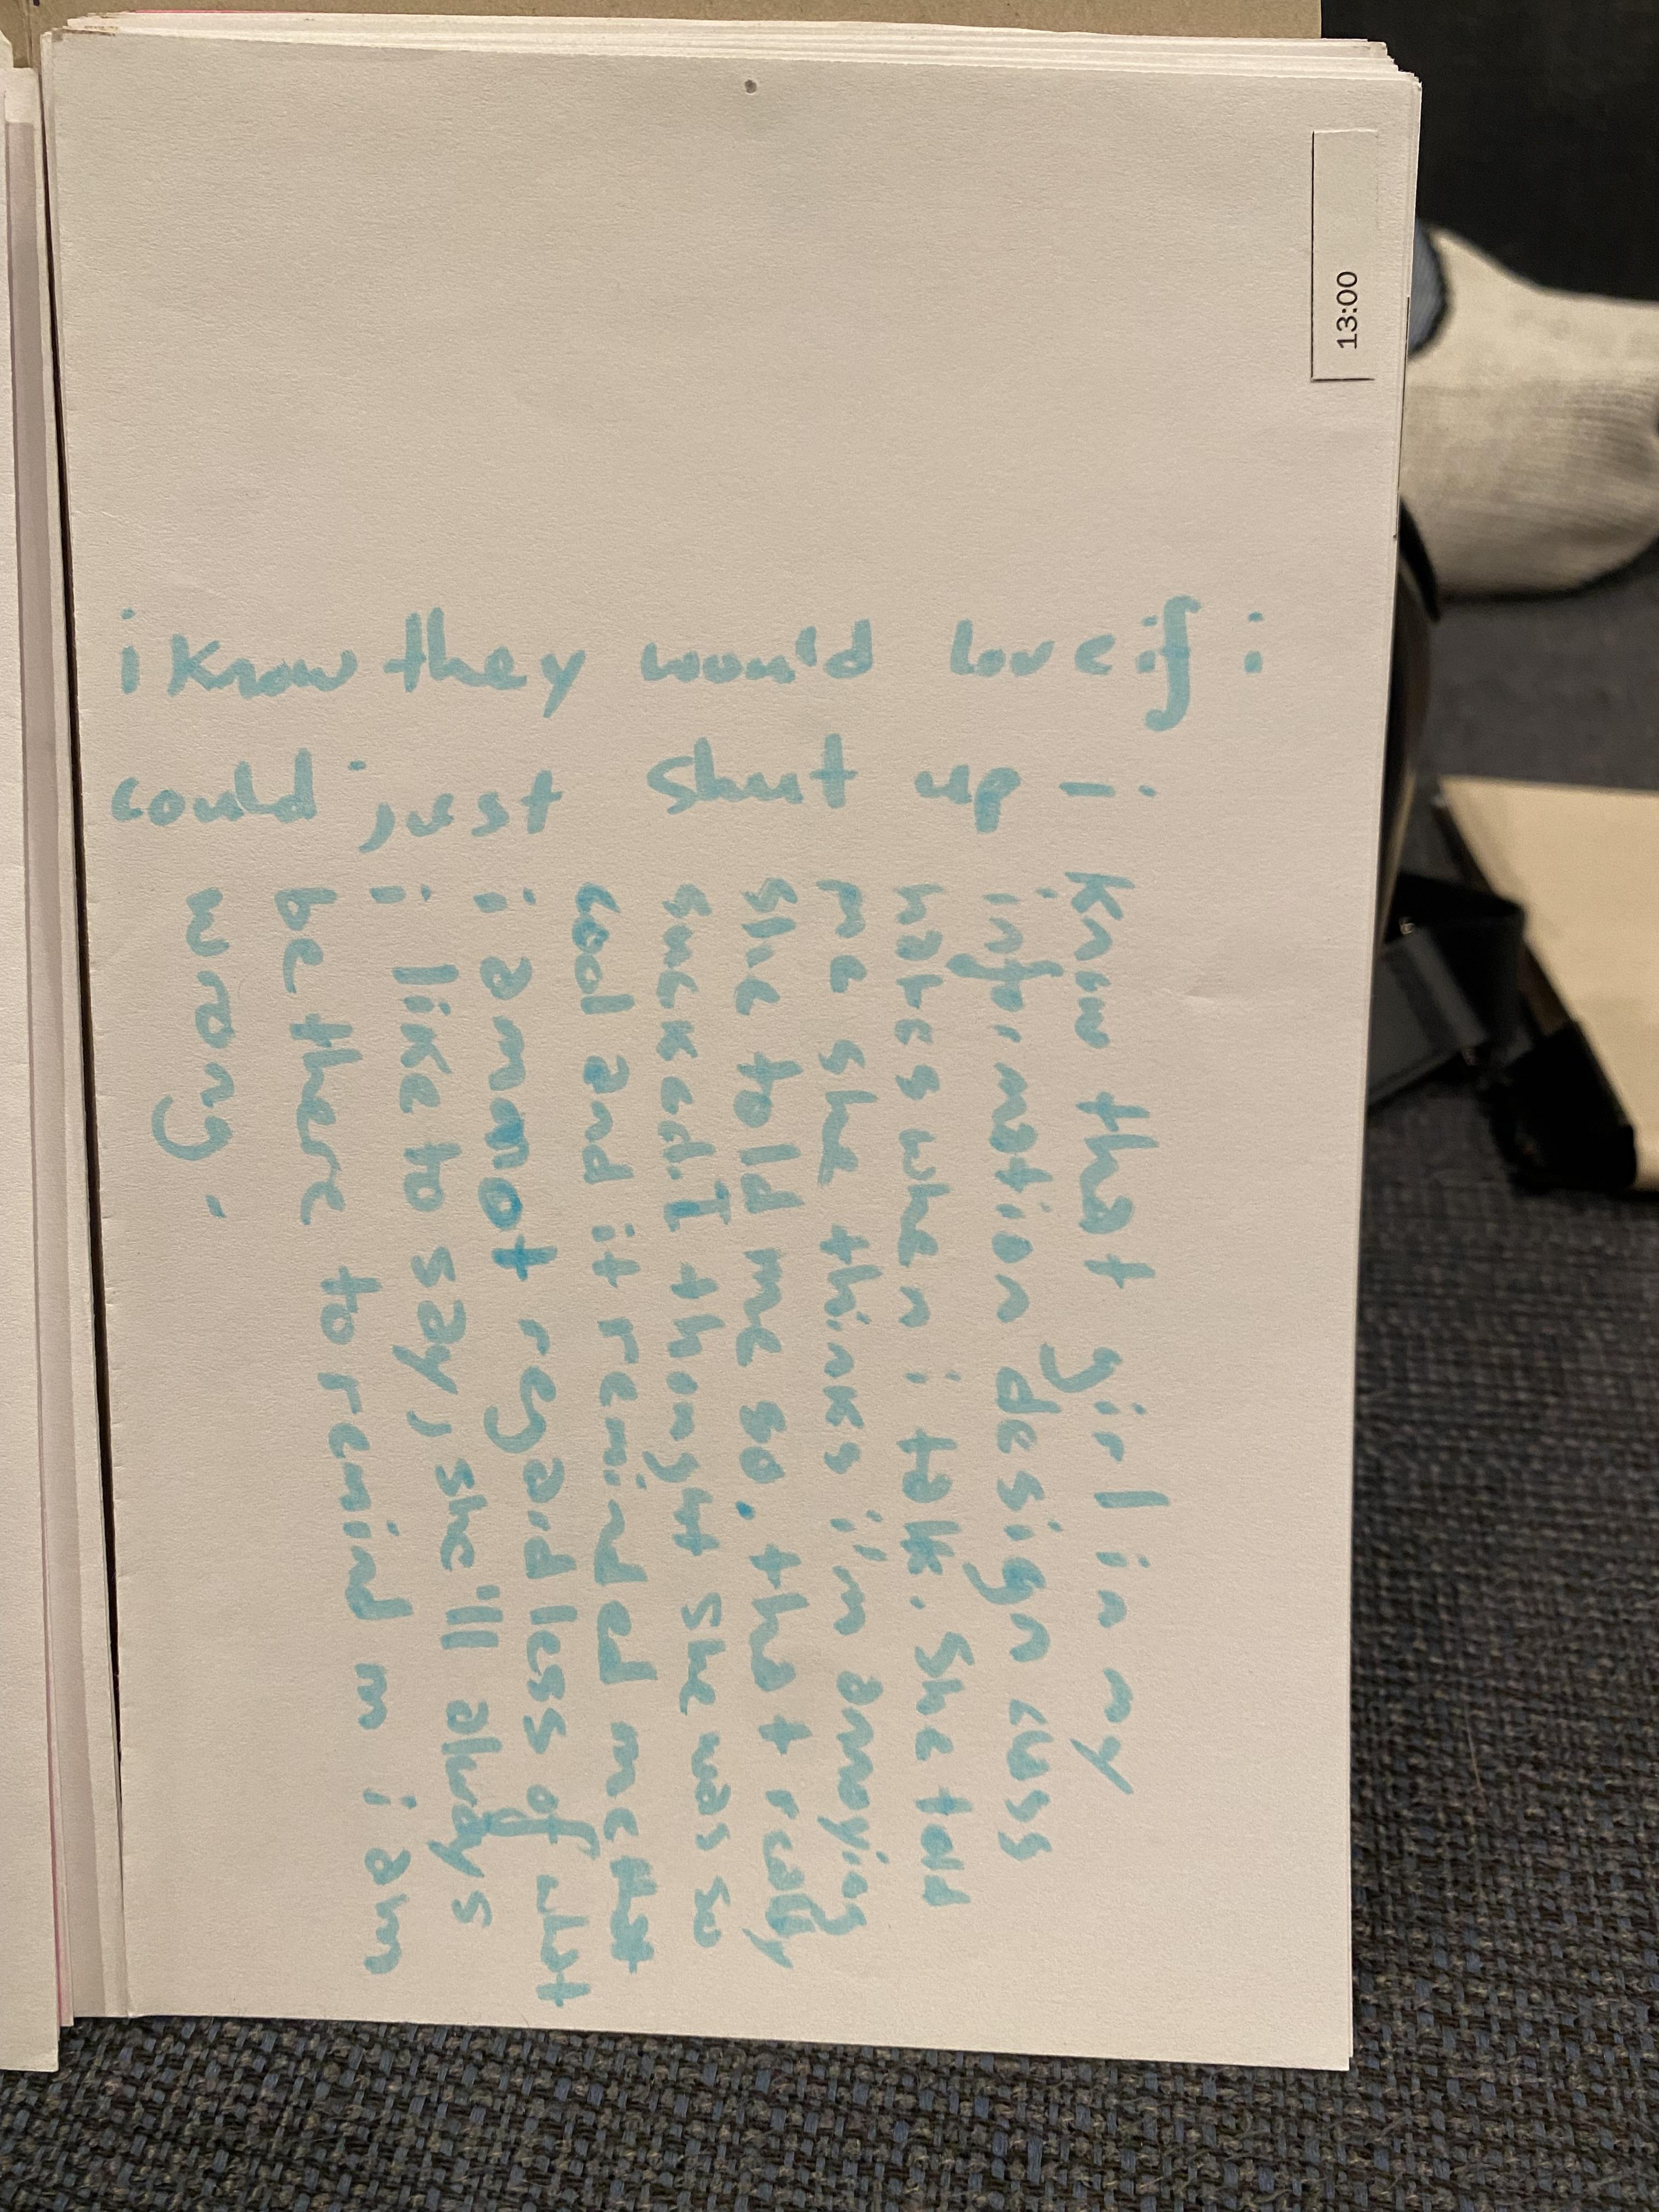 13:00
i know they would love if i
could just shut up i
know that girl in my
information design cuss
hates when i talk. She told
me she thinks i'm annoying
she told me so. that really
sucked. I thought she was so
cool and it reminded me that
i am not regardless of wht
i like to say, she'll always
be there to remind m i am
wrong.